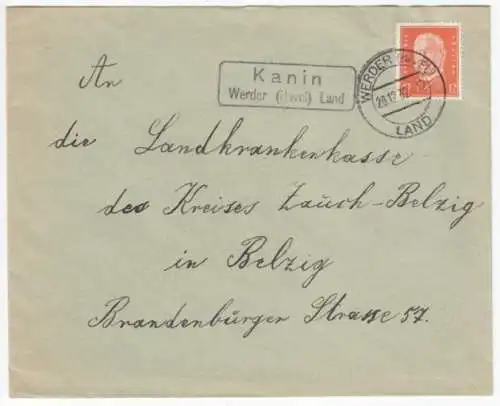 An
Kanin
Werder (Havel) Land
WERDER (HAVEL)
LAND
die Landkrankenkasse
des Kreises Zauch-Belzig
in Belzig
Brandenburger Strasse 57.